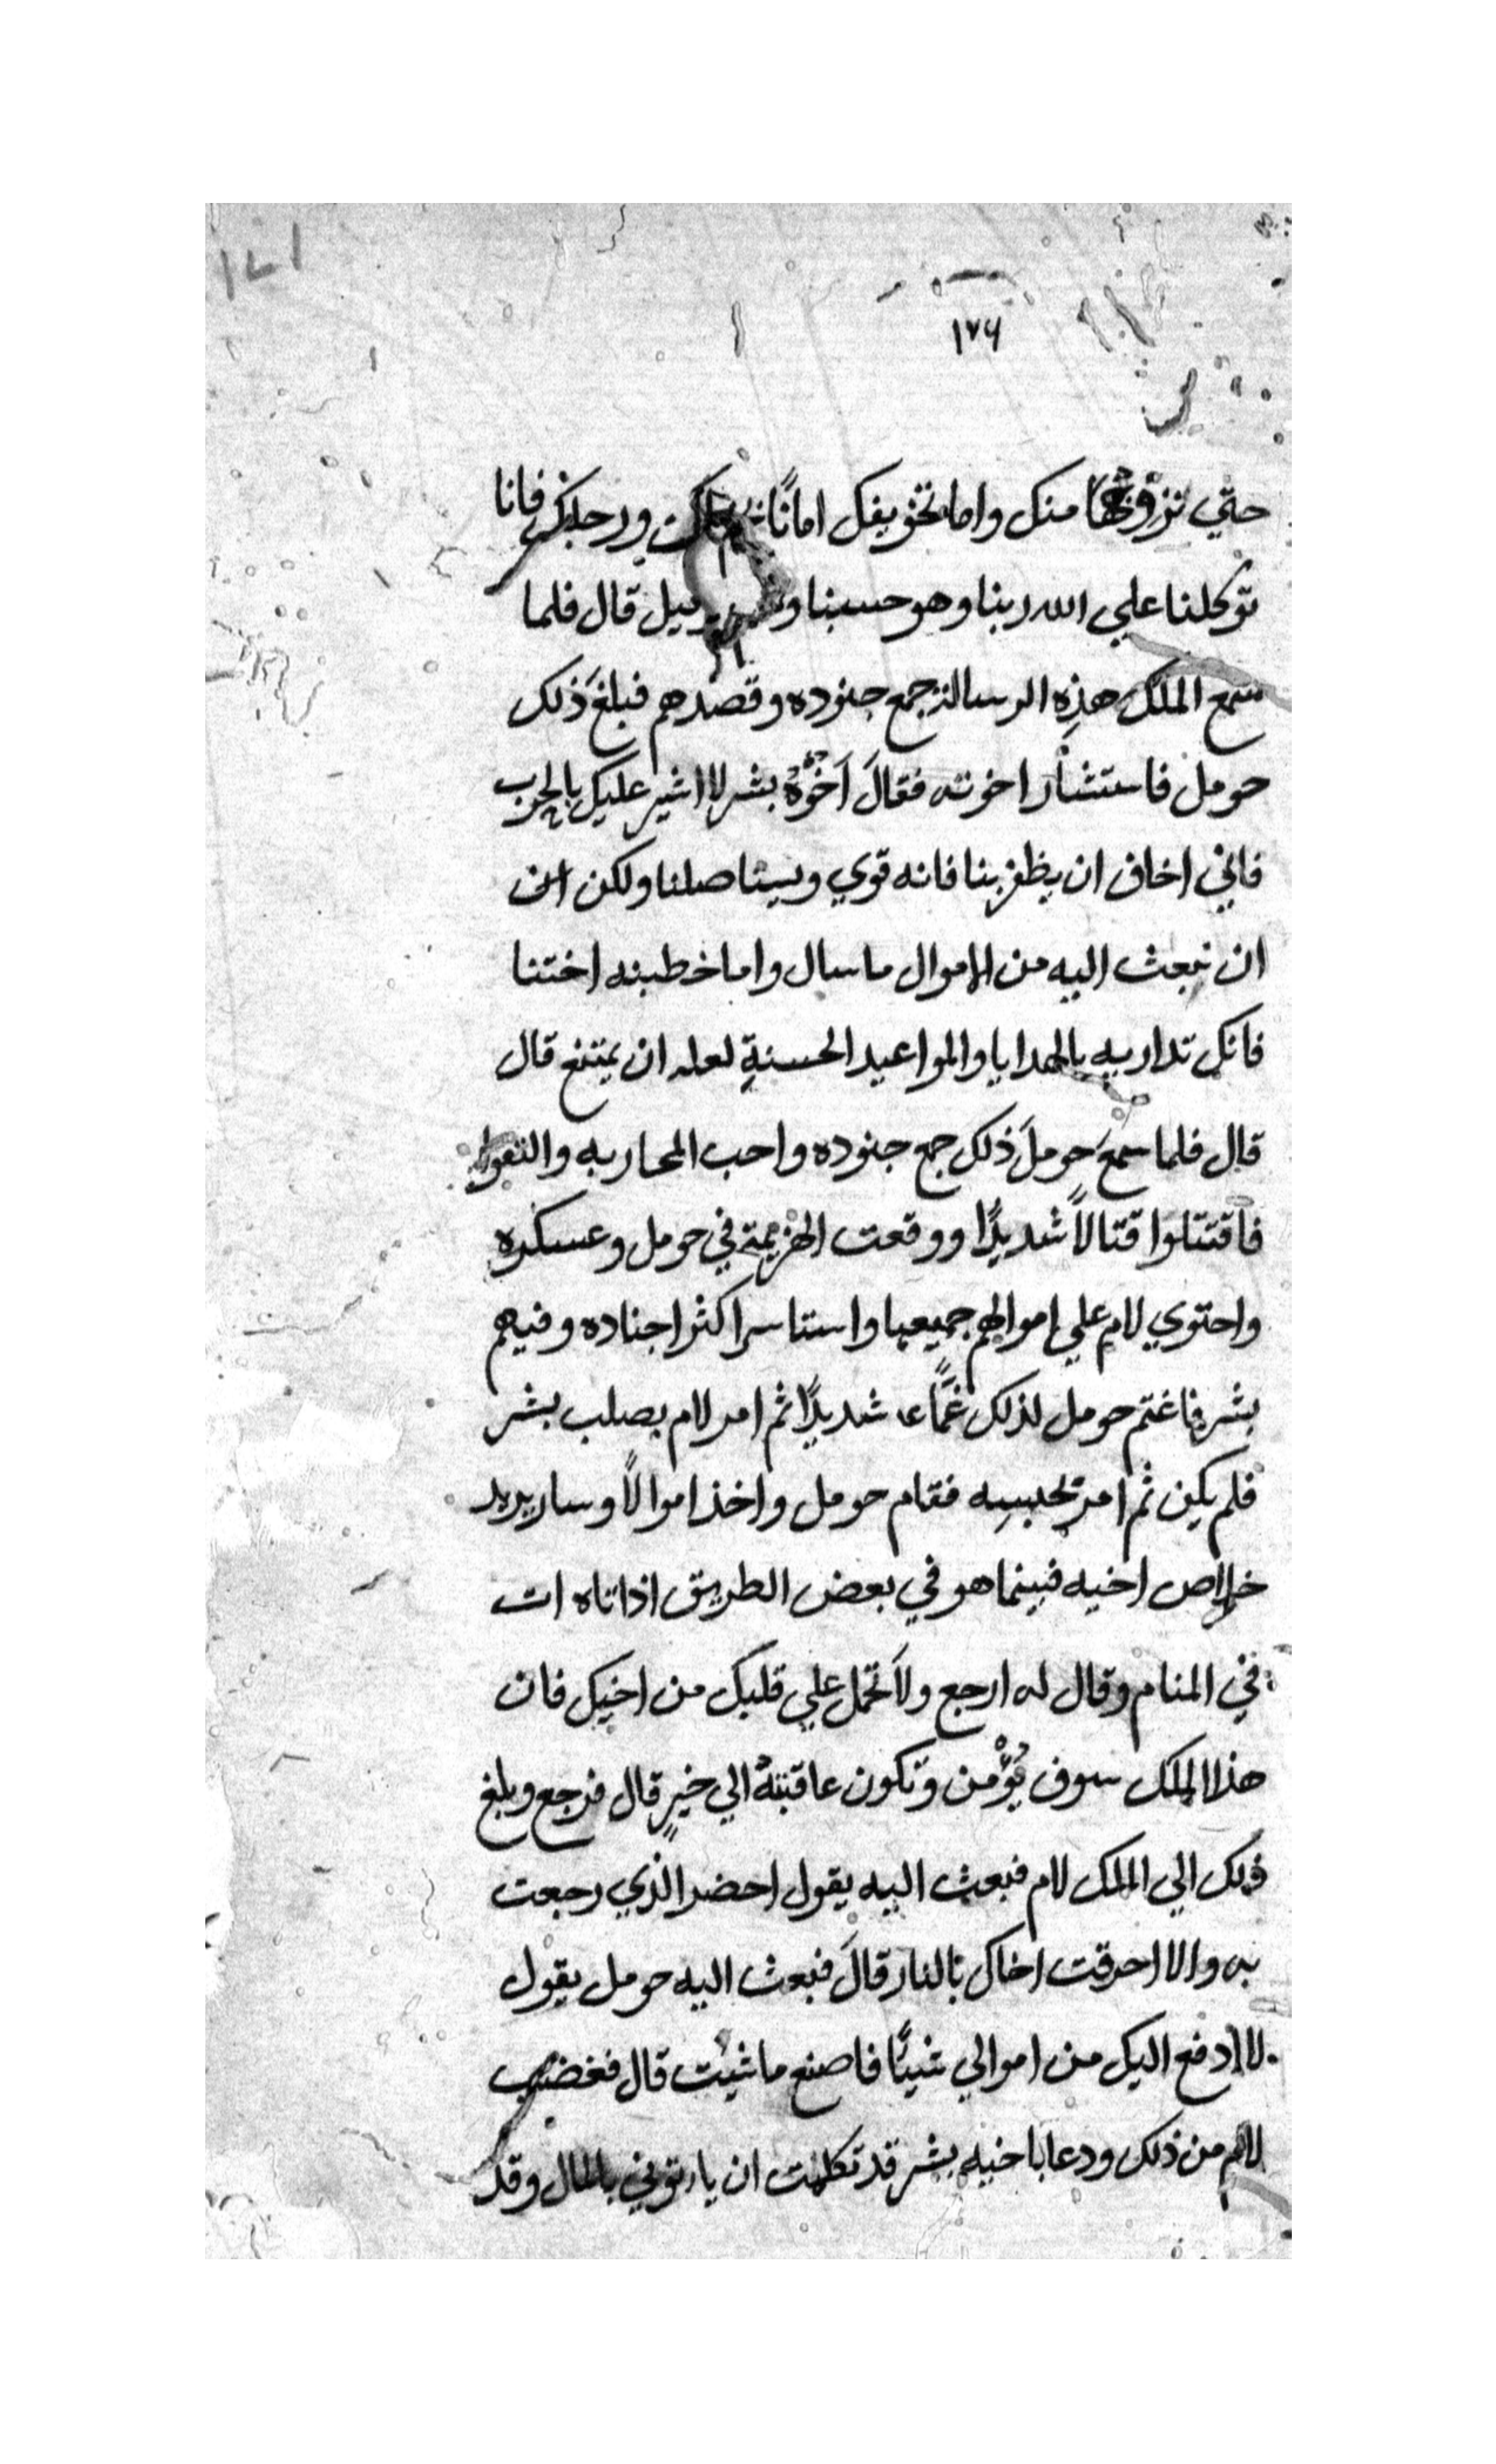 ١٧١
١٧٦
حتي نزوجها منك واما تخويفك امانا ورجلك فانا
توكلنا علي الله ربنا وهو حسبنا قال فلما
سمع الملك هذه الرسالة جمع جنوده وقصدهم فبلغ ذلك
حومل فاستشار اخوته فقال اخوه بشر لا اشير عليك بالحرب
فاني اخاف ان يظفر بنا فانه قوي ويستاصلنا ولكن
ان نبعث اليه من الاموال ما سال واما خطبته اختنا
فانك تداريه بالهدايا والمواعيد الحسنة لعله ان يمتنع قال
قال فلما سمع حومل ذلك جمع جنوده واحب المحاربه والتقوا
فاقتتلوا قتالاً شديدًا ووقعت الهزيمة في حومل وعسكره
واحتوي لام علي اموالهم جميعها واستاسر اكثر اجناده وفيهم
بشر فاغتم حومل لذلك غمًّا شديدًا ثم امر لام بصلب بشر
فلم يكن ثم امر بحبسه فقام حومل واخذ اموالاً وسار يريد
خلاص اخيه فبينما هو في بعض الطريق اذا تاه ات
في المنام وقال له ارجع ولا تحمل علي قلبك من اخيك فان
هذا الملك سوف يؤمن وتكون عاقبته الي خيرٍ قال فرجع وبلغ
ذلك الي الملك لام فبعث اليه يقول احضر الذي رجعت
به والا احرقت اخاك بالنار قال فبعث اليه حومل يقول
لا ادفع اليك من اموالي شيئًا فاصنع ما شيت قال فغضب
لام من ذلك ودعا باخيه بشر قد تكلمت ان ياتوني بالمال وقد